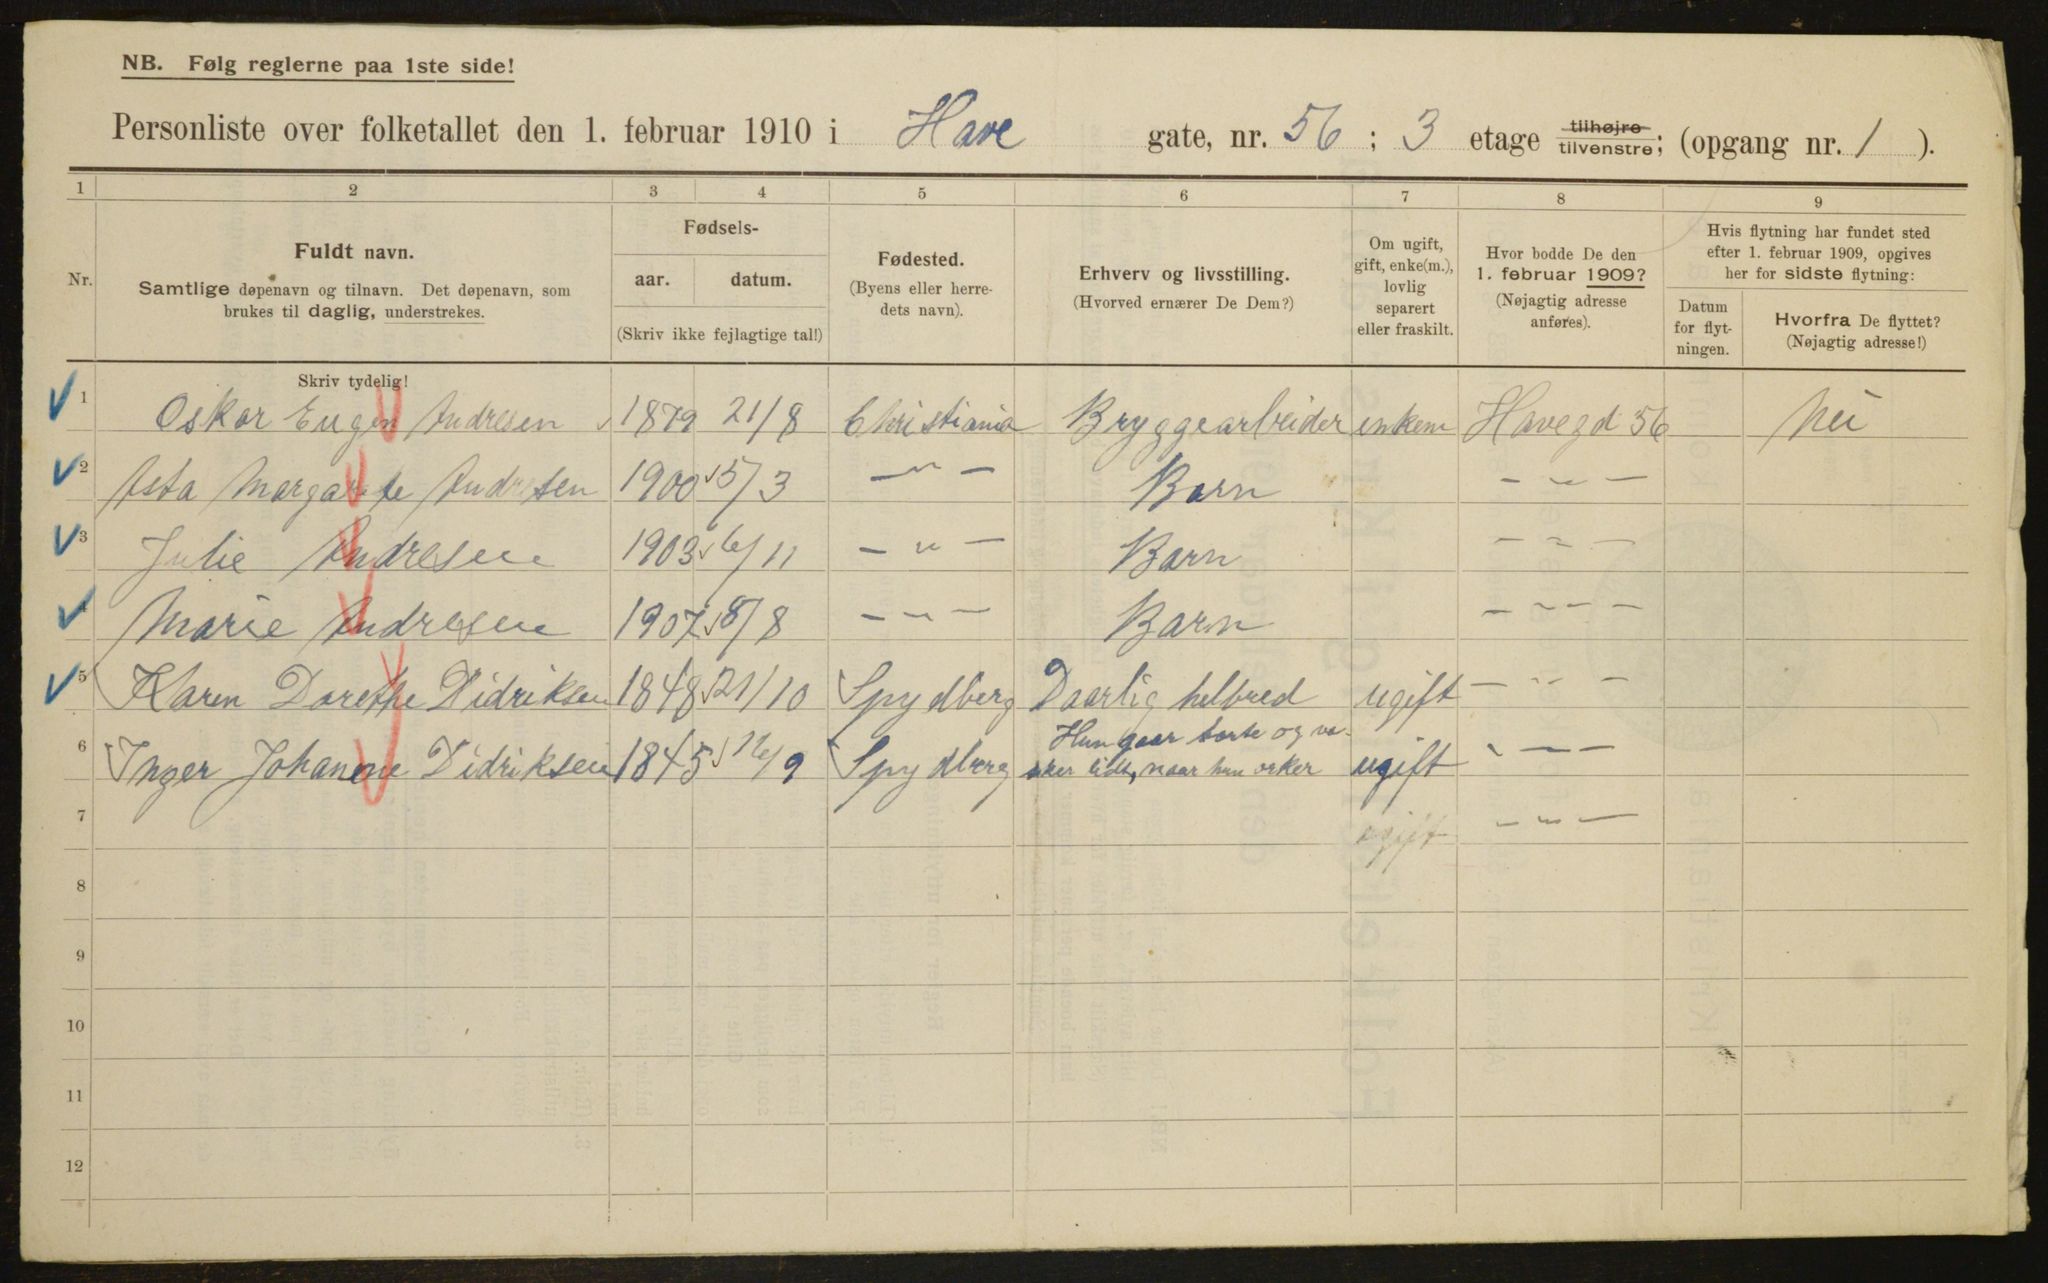 NB. Følg reglerne paa 1ste side!
Personliste over folketallet den 1. februar 1910 i Have gate, nr. 56 ; 3 etage tilhøjre tilvenstre; (opgang nr. 1 ).
1 2 3 4 5 6 7 8 9
Nr.
Fuldt navn.
Samtlige døpenavn og tilnavn. Det døpenavn, som
brukes til daglig, understrekes.
Fødsels-
aar. datum.
(Skriv ikke fejlagtige tal!)
Fødested.
(Byens eller herre-
dets navn).
Erhverv og livsstilling.
(Hvorved ernærer De Dem?)
Om ugift,
gift, enke(m.),
lovlig
separert
eller fraskilt.
Hvor bodde De den
1. februar 1909?
(Nøjagtig adresse
anføres).
Hvis flytning har fundet sted
efter 1. februar 1909, opgives
her for sidste flytning:
Datum
for flyt-
ningen.
Hvorfra De flyttet?
(Nøjagtig adresse!)
Skriv tydelig!
1 Oskar Eugen Andresen 1879 21/8 Christiania Bryggearbeider enkem Havegd 56 Nei
2 Asta Margarete Andresen 1900 5/3 — " — Barn — " —
3 Julie Andresen 1903 6/11 — " — Barn — " —
4 Marie Andresen 1907 8/8 — " — Barn — " —
5 Karen Dorethe Didriksen 1848 21/10 Spydberg Daarlig helbred ugift — " —
6 Inger Johanne Didriksen 1845 16/9 Spydberg Hun gaar borte og va-
sker lidt, naar hun orker ugift — " —
7 ugift — " —
8
9
10
11
12